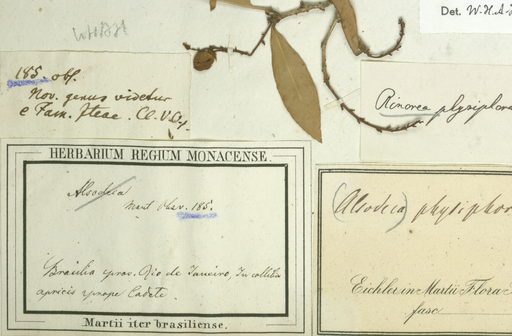 Det. W.H.A.
185. obs.
Nov. genus videtur
e Fam. Iteae. Cl. V. 
Rinorea physiphora
HERBARIUM REGIUM MONACENSE.
Alsodeia
Mart. Obs. 185.
(Alsodeia) physiphor
Brasilia prov. Rio de Janeiro, In collibus
apricis prope Cadete.
Eichler in Martii Flora
fasc
Martii iter brasiliense.